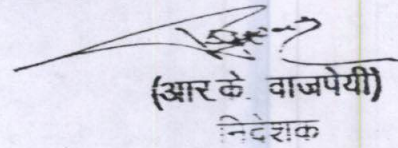 (आर के. वाजपेयी)
निदेशक